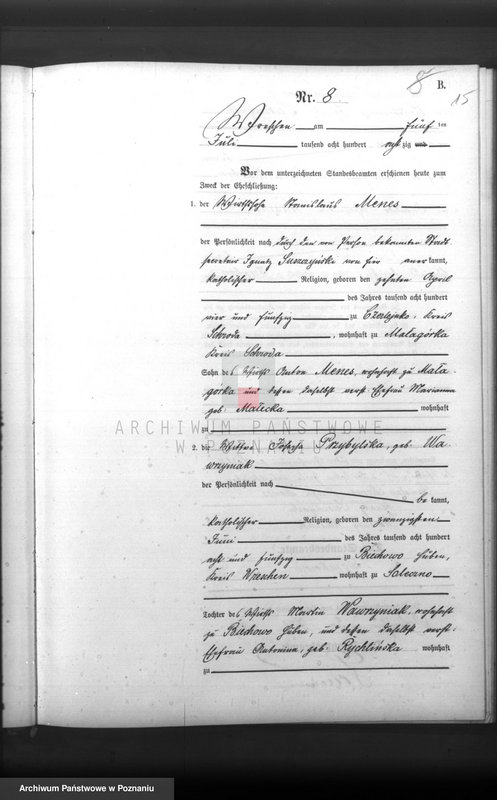 8
B.
15
Nr. 8
Wreschen am fünf ten
Juli tausend acht hundert acht zig und
Vor dem unterzeichneten Standesbeamten erschienen heute zum
Zweck der Eheschließung:
1. der Wirthssohn Stanislaus Menes
der Persönlichkeit nach durch den von Person bekannten Stadt
secretair Ignatz von hier anerkannt,
katholischer Religion, geboren den zehnten April
des Jahres tausend acht hundert
vier und fünfzig zu Czerlejnko, Kreis
Schroda, wohnhaft zu Małagórka
Kreis Schroda
Sohn des Wirths Anton Menes, wohnhaft zu Mała
górka und dessen daselbst verst. Ehefrau Marianna
geb. Małecka wohnhaft
zu
2. die Wittwe Josepha Przybylska, geb. Wa
wrzyniak
der Persönlichkeit nach
be kannt,
katholischer Religion, geboren den zwanzigsten
Juni des Jahres tausend acht hundert
acht und fünfzig zu Biechowo Huben,
Kreis Wreschen wohnhaft zu Soleczno
Tochter des Wirths Martin Wawrzyniak, wohnhaft
zu Biechowo Huben, und dessen daselbst verst.
Ehefrau Antonina, geb. Rychlińska wohnhaft
zu
ARCHIWUM PAŃSTWOWE
W POZNANIU
Archiwum Państwowe w Poznaniu
Archiwum Państwowe w Poznaniu